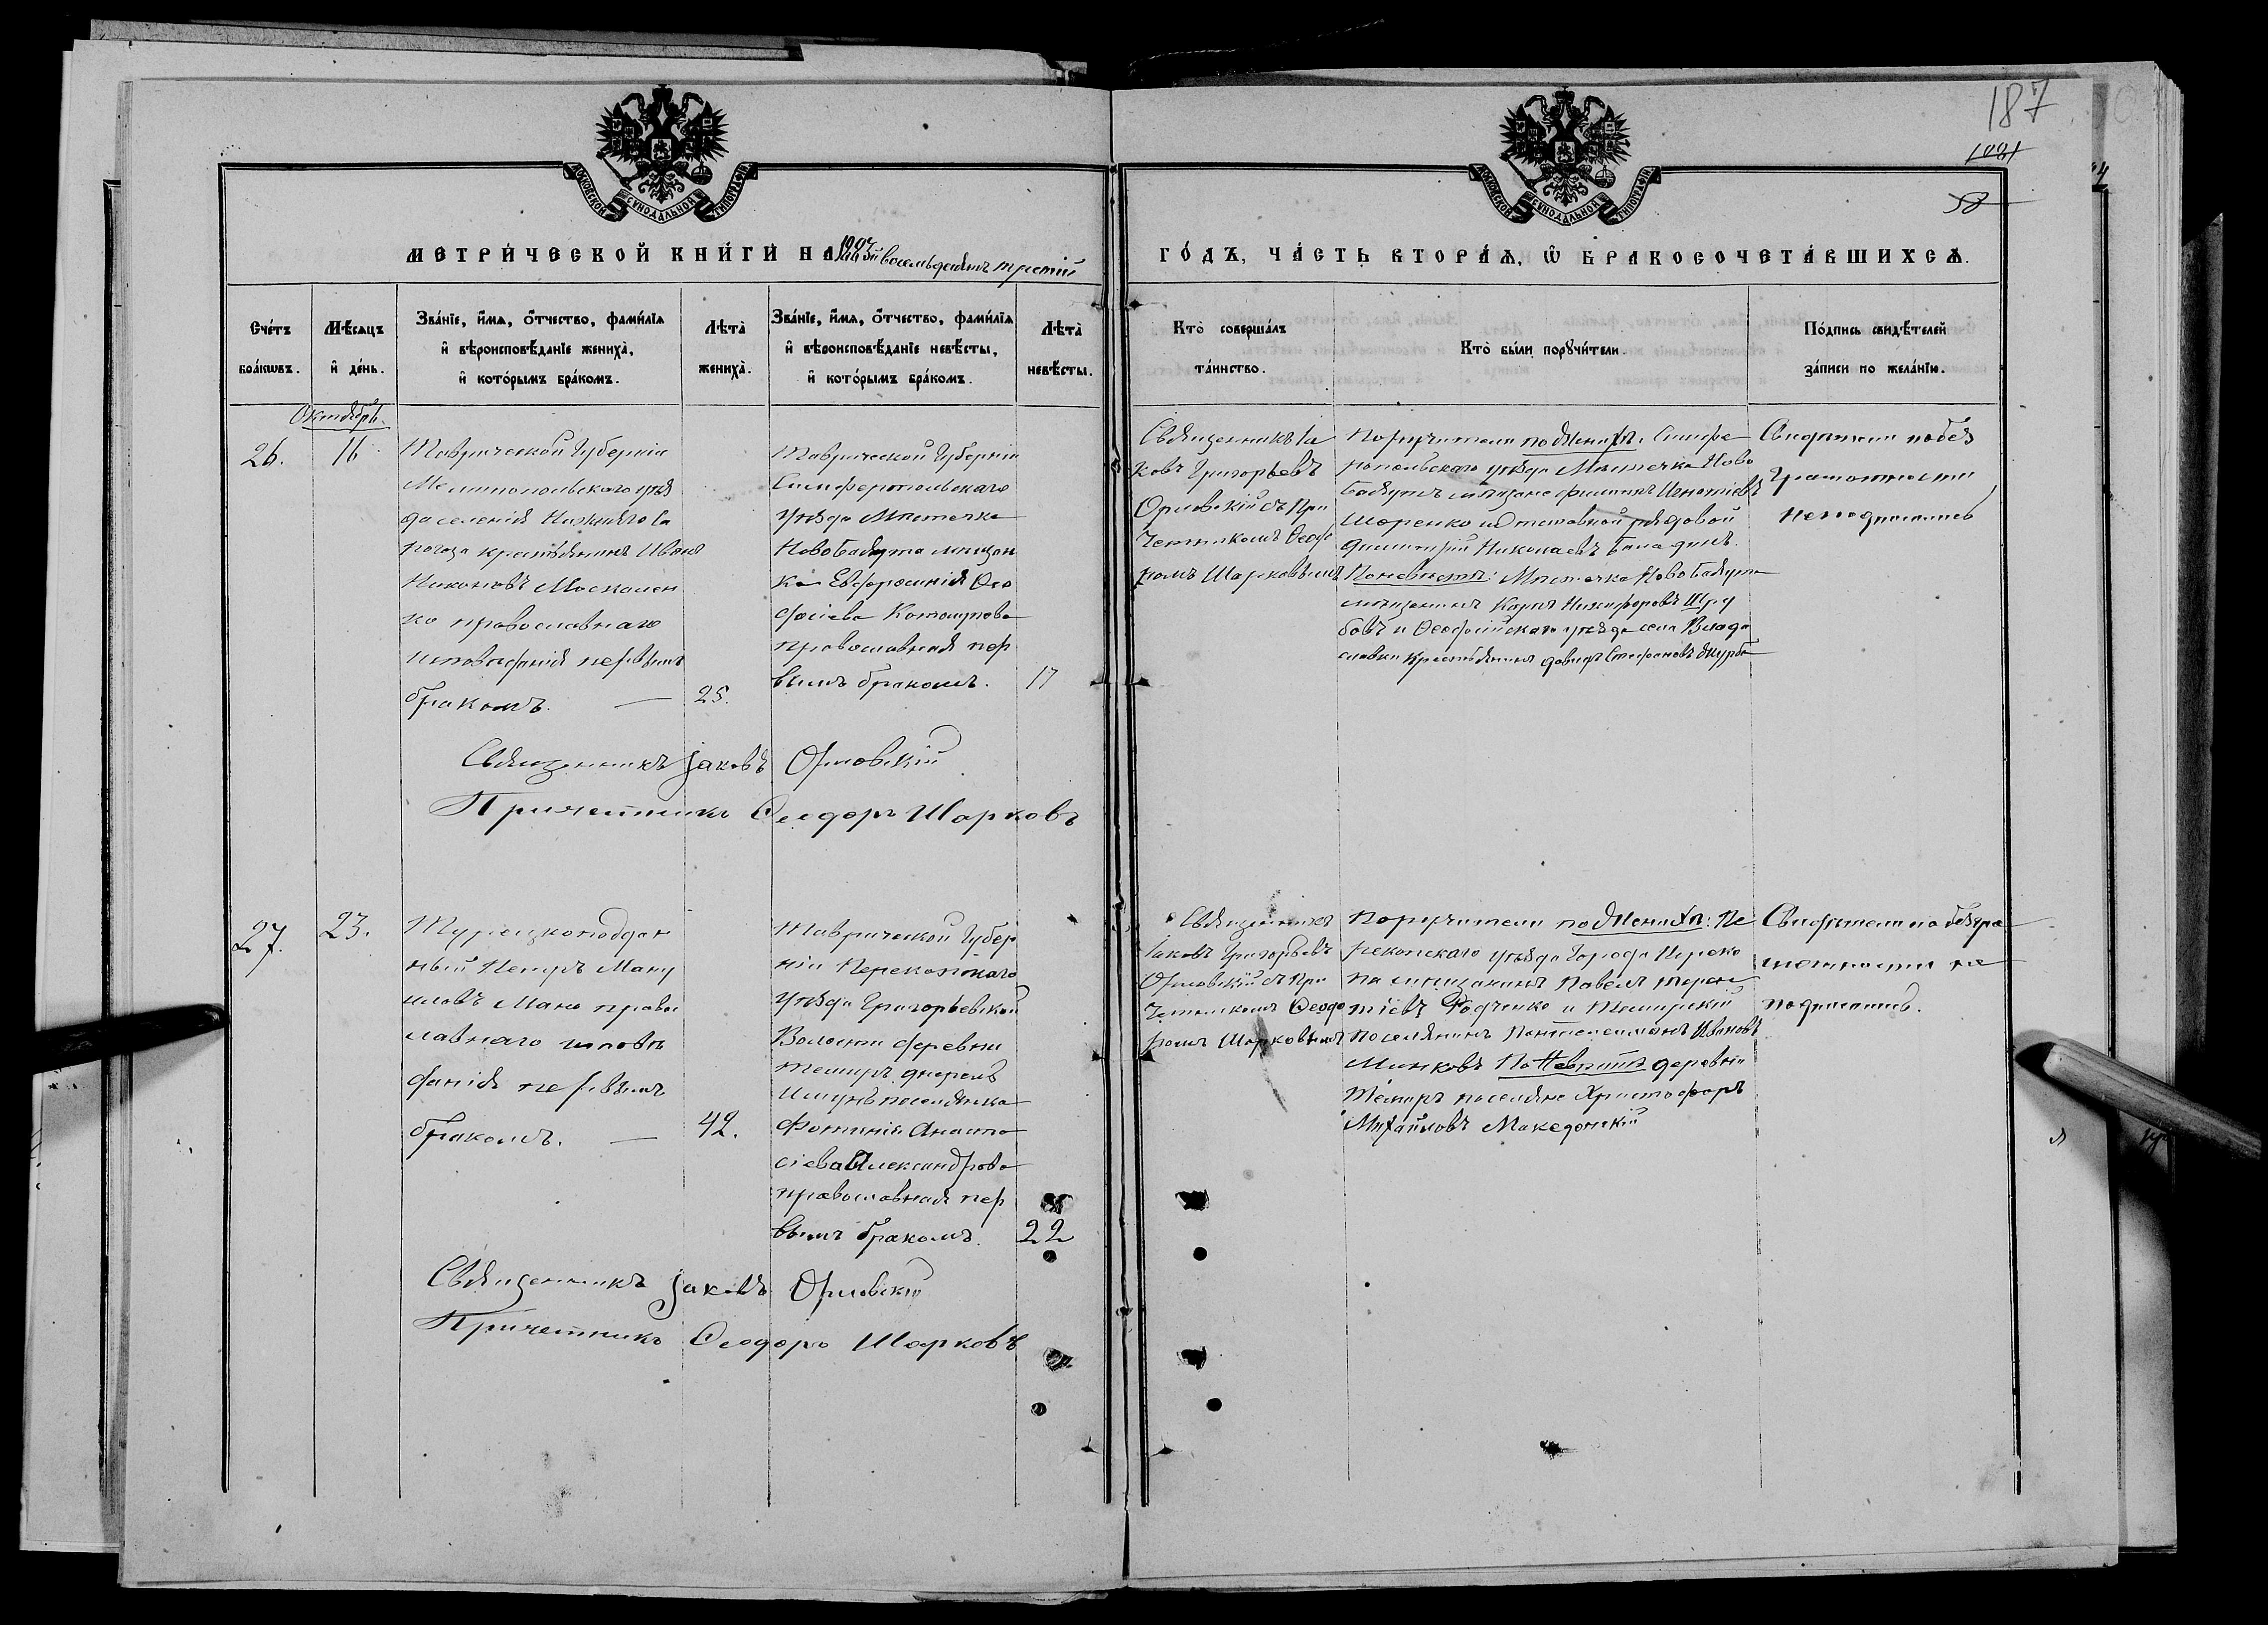 187
1081
58
МОСКОВСКОЙ СѴНОДАЛЬНОЙ ТИПОГРАФІИ
МОСКОВСКОЙ СѴНОДАЛЬНОЙ ТИПОГРАФІИ
МЕТРИ́ЧЕСКОЙ КНИ́ГИ НА восемьдесятъ третій
ГО́ДЪ, ЧА́СТЬ ВТОРА́Ѧ, Ѡ҆ БРАКОСОЧЕТА́ВШИХСѦ.
Сче́тъ бра́кѡвъ.
Мѣ́сѧцъ и҆ де́нь.
Зва́нїе, и҆́мѧ, о҆́тчество, фами́лїѧ
и҆ вѣроисповѣ́данїе жениха̀,
и҆ кото́рымъ бра́комъ.
Лѣта̀
жениха̀.
Зва́нїе, и҆́мѧ, о҆́тчество, фами́лїѧ
и҆ вѣроисповѣ́данїе невѣ́сты,
и҆ кото́рымъ бра́комъ.
Лѣта̀
невѣ́сты.
Кто̀ соверша́лъ
та́инство.
Кто̀ бы́ли порꙋчи́тели.
По́дпись свидѣ́телей
за́писи по жела́нїю.
Октябрь.
26.
16
Таврической Губерніи
Мелитопольскаго уѣз
да селенія Нижняго Се
рогоза крестьянинъ Иванъ
Никоновъ Москален
ко православнаго
исповѣданія первымъ
бракомъ. — 25.
Таврической Губерніи
Симферопольскаго
Уѣзда Мѣстечка
Новобаяута мѣщан
ка Евфросинія Ѳео
досіева
православная пер
вымъ бракомъ. 17
Священникъ Іа
ковъ Григорьевъ
Орловскій съ При
четникомъ Ѳеодо
ромъ Шарковымъ
Поручители по Женихѣ: Симфе
ропольскаго уѣзда Мѣстечка Ново
баяутъ мѣщане Филиппъ Игнатіевъ
Шоренко и Отставной рядовой
Димитрій Николаевъ
По невѣстѣ: Мѣстечка Новобаяута
мѣщанинъ Карпъ Никифоровъ
и Ѳеодосійскаго уѣзда села Влади
славки Крестьянинъ Давидъ Стефановъ
Свидѣтели по без
Грамотности
неподписались
Священникъ Іаковъ Орловскій
Причетникъ Ѳеодоръ Шарковъ
27.
23.
Турецкоподдан
ный Петръ Ману
иловъ Мано право
славнаго исповѣ
данія первымъ
бракомъ. — 42.
Таврической Губер
ніи Перекопскаго
Уѣзда Григорьевской
Волости деревни
поселянка
Фотинія Анаста
сіева Александрова
православная пер
вымъ бракомъ. 22
Священникъ
Іаковъ Григорьевъ
Орловскій съ При
четникомъ Ѳеодо
ромъ Шарковымъ
Поручители по Женихѣ: Пе
рекопскаго уѣзда Города Переко
па мѣщанинъ Павелъ Терен
тіевъ Радченко и
поселянинъ Пантелеимонъ Ивановъ
Минковъ По Невѣстѣ деревни
Темиръ поселяне Христофоръ
Михайловъ Македонскій
Свидѣтели по безгра
мотности не
подписались.
Священникъ Іаковъ Орловскій
Причетникъ Ѳеодоръ Шарковъ